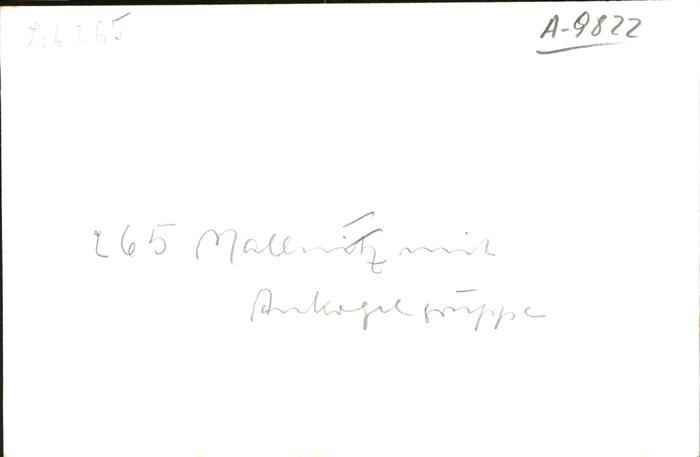 265
A-9822
265 Mallnitz mit
Ankogelgruppe